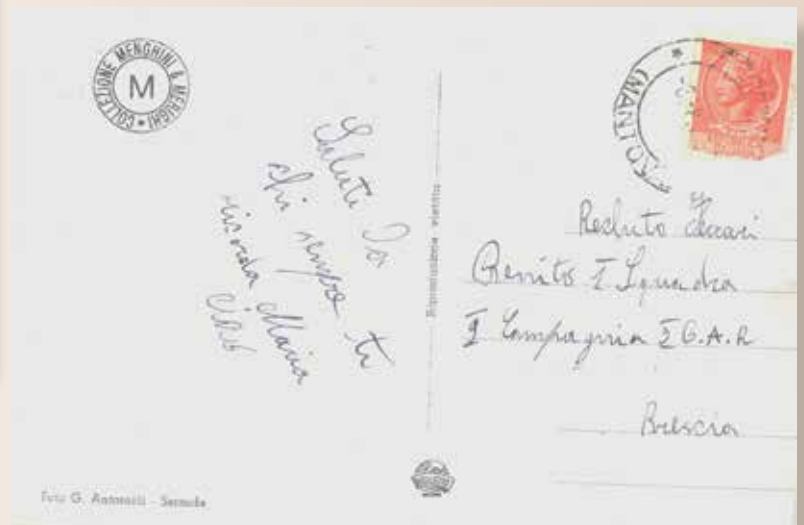 COLLEZIONE MENGHINI & MERIGHI
M
Saluti Da
chi sempre ti
ricorda Maria
Ciao
Riproduzione vietata
(MANTOVA)
Recluta Ferrari
Benito I Squadra
I Compagnia I C.A.R
Brescia
Foto G. Antonioli - Sermide